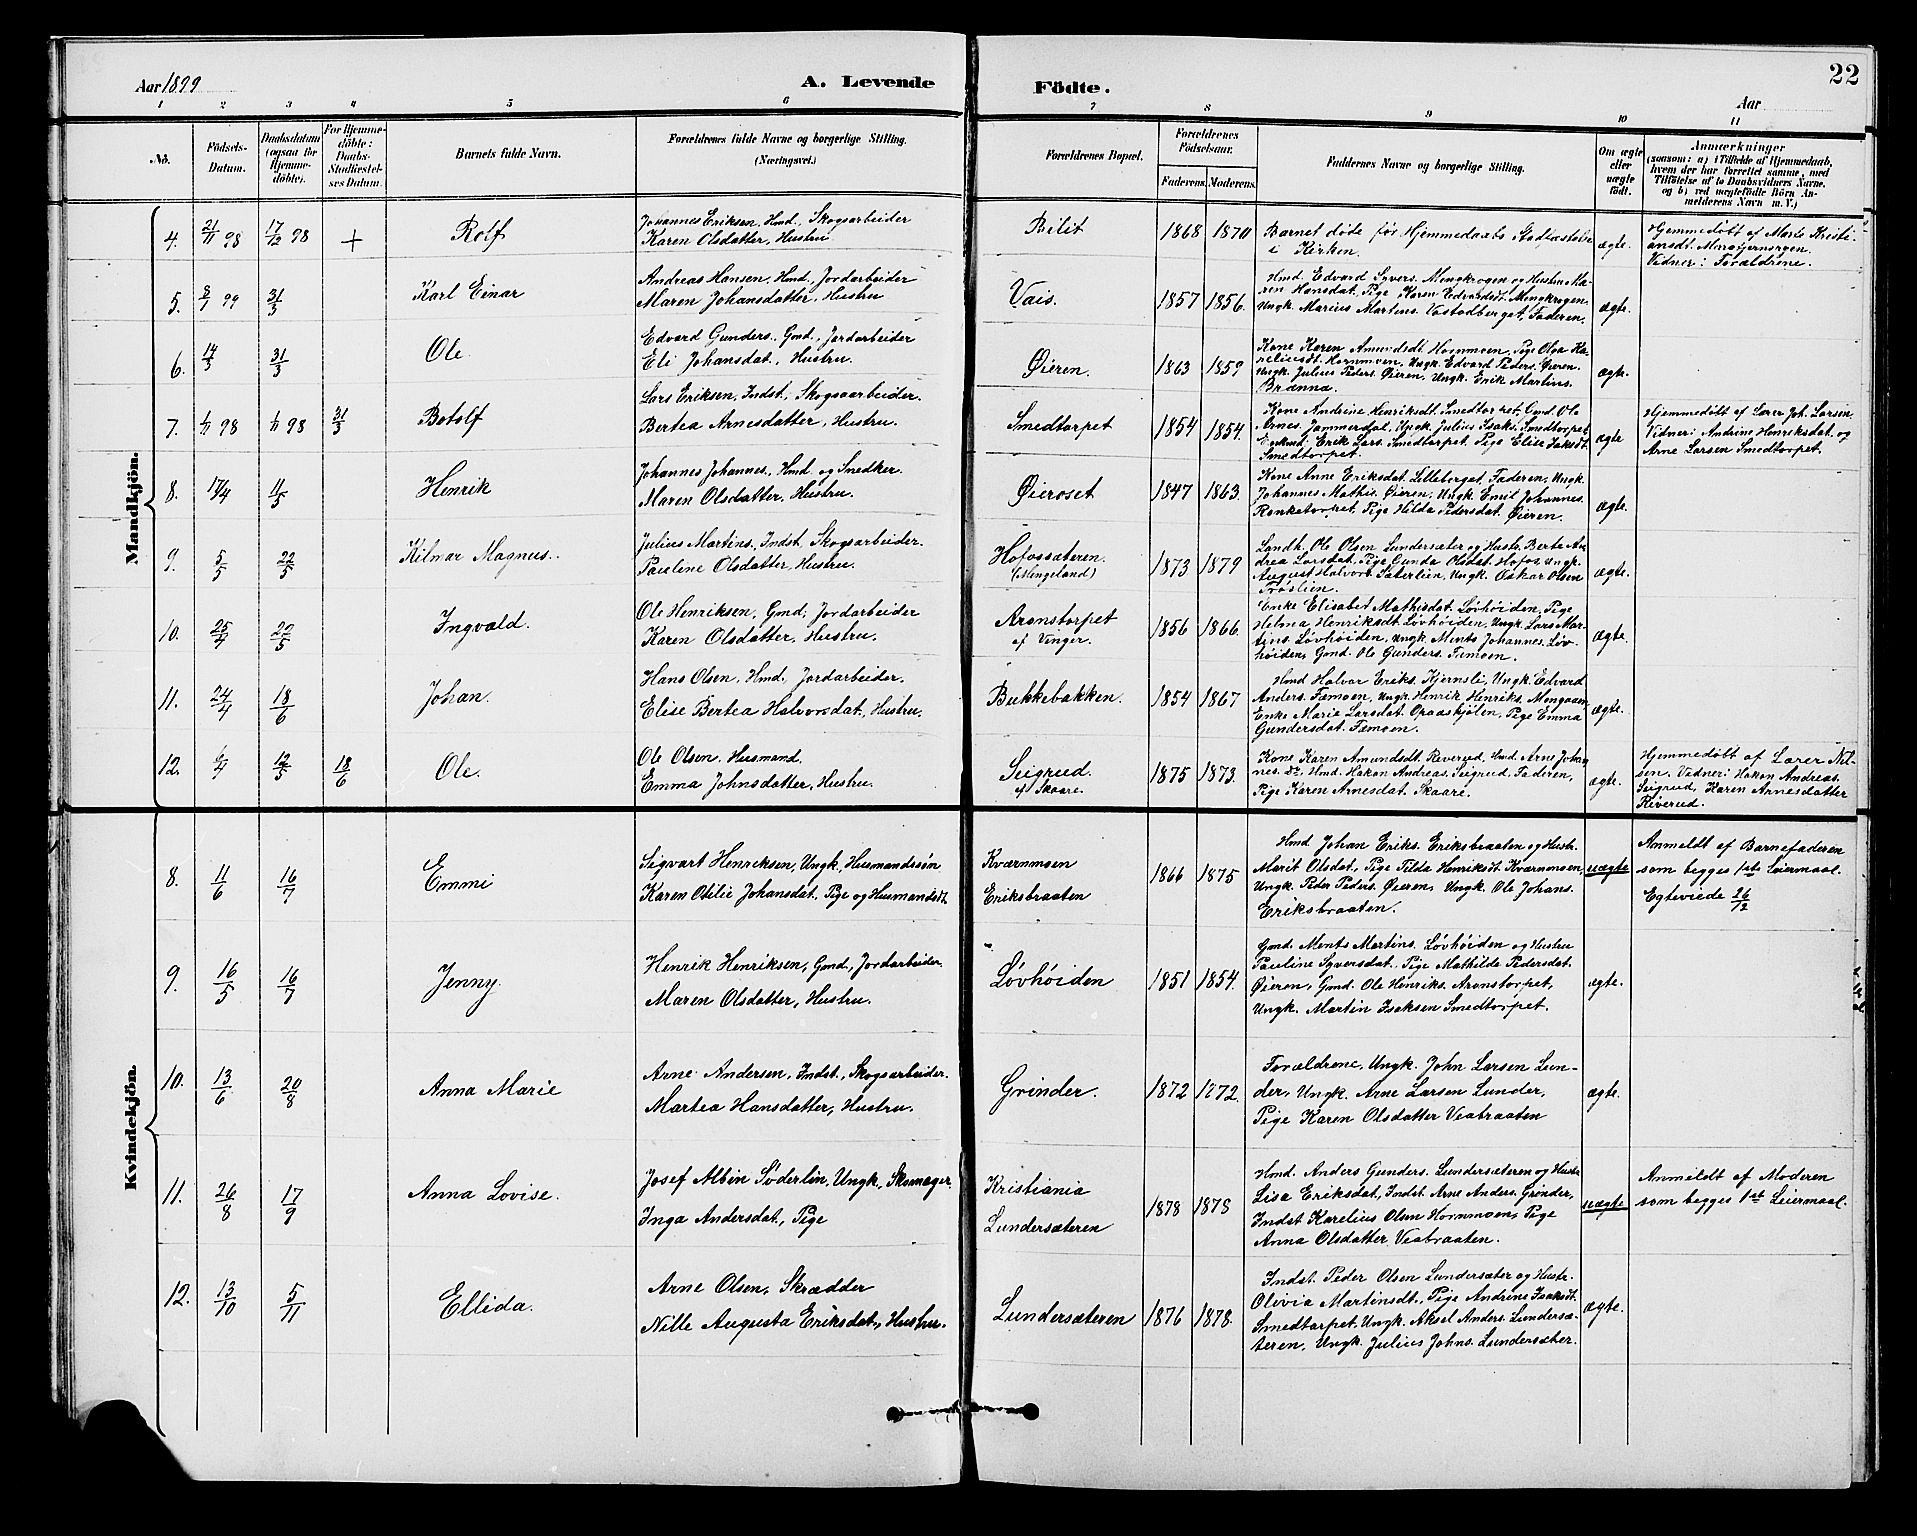 22
Aar 1899
A. Levende
Födte.
Aar
1 2 3 4 5 6 7 8 9 10 11
No.
Födsels-
Datum.
Daabsdatum
(ogsaa for
Hjemme-
döbte).
For Hjemme-
döbte:
Daabs-
Stadfæstel-
ses Datum.
Barnets fulde Navn.
Forældrenes fulde Navne og borgerlige Stilling.
(Næringsvei.)
Forældrenes Bopæl.
Forældrenes
Födselsaar.
Faderens. Moderens.
Faddernes Navne og borgerlige Stilling.
Om ægte
eller
uægte
födt.
Anmærkninger
(saasom: a) i Tilfælde af Hjemmedaab,
hvem der har forrettet samme, med
Tilföielse af to Daabsvidners Navne,
og b) ved uægtefödte Börn An-
melderens Navn m. V.)
Mandkjön.
4. 21/11 98 17/12 98 + Rolf
Johannes Eriksen, Hmd., Skogsarbeider
Karen Olsdatter, Hustru
Bilit 1868 1870
Barnet døde før Hjemmedaabs Stadfæstelse
i Kirken. ægte.
Hjemmedøbt af Marte Kristi-
Vidner: Forældrene.
5. 8/1 99 31/3 Karl Einar
Andreas Hansen, Hmd. Jordarbeider
Maren Johansdatter, Hustru
Vais. 1857 1856.
Hmd. Edvard Syvers. Mengkrogen og Hustru Ma-
ren Hansdat. Pige Karen Edvardsdt. Mengkrogen.
Ungk. Marius Martins. Vestadberget, Faderen. ægte.
6. 14/3 31/3 Ole.
Edvard Gunders., Gmd., Jordarbeider
Eli Johansdat., Hustru.
Øieren. 1863 1859
Kone Karen Amundsdt. Hornmoen, Pige Olga Ka-
reliusdt. Hornmoen, Ungk. Edvard Peders. Øieren.
Ungk. Julius Peders. Øieren, Ungk. Erik Martins.
Brænna. ægte.
7. 1/11 98 1/11 98 31/3 Botolf
Lars Eriksen, Indst., Skogsarbeider.
Bertea Arnesdatter, Hustru.
Smedtorpet 1854 1854.
Kone Andrine Henriksdt. Smedtorpet, Gmd. Ole
Arnes. Jammerdal, Ungk. Julius Isaks. Smedtorpet
Erik Lars. Smedtorpet, Pige Elise Isaksdt.
Smedtorpet. ægte
Hjemmedøbt af Lærer Joh. Larsen.
Vidner: Andrine Henriksdat. og
Arne Larsen Smedtorpet.
8. 17/4 11/5 Henrik
Johannes Johannes., Hmd. og Snedker.
Maren Olsdatter, Hustru.
Øieroset 1847 1863.
Kone Anne Eriksdat. Lilleberget. Faderen, Ungk.
Johannes Mathis. Øieren, Ungk. Emil Johannes.
Ronketorpet, Pige Hilda Pedersdat. Øieren. ægte.
9. 5/5 22/5 Hilmar Magnus.
Julius Martins. Indst. Skogsarbeider.
Pauline Olsdatter, Hustru.
Hofossæteren.
(Mengeland) 1873 1879
Landh. Ole Olsen Lundersæter og Hustr. Berte An-
drea Larsdat. Pige Gunda Olsdat. Hofos, Ungk.
August Halvors. Sæterlien, Ungk. Oskar Olsen
Frøslien. ægte.
10. 25/4 22/5 Ingvald.
Ole Henriksen, Gmd. Jordarbeider
Karen Olsdatter, Hustru.
Aronstorpet
af Vinger. 1856 1866.
Enke Elisabet Mathisdat. Løvhøiden, Pige
Helma Henriksdt. Løvhøiden, Ungk. Lars Mar-
tins. Løvhøiden, Ungk. Ments Johannes. Løv-
høiden, Gmd. Ole Gunders. Tæmoen. ægte.
11. 24/4 18/6 Johan.
Hans Olsen, Hmd., Jordarbeider.
Elise Bertea Halvorsdat., Hustru.
Bukkebakken. 1854 1867
Hmd. Halvor Eriks. Kjernsli, Ungk. Edvard
Anders. Tæmoen, Ungk. Henrik Henriks. Mengaaen
Enke Marie Larsdat. Opaaskjølen, Pige Emma
Gundersdat. Tæmoen. ægte.
12. 6/4 12/5 18/6 Ole.
Ole Olsen. Husmand.
Emma Johnsdatter, Hustru.
Seigrud.
af Skaare. 1875 1873.
Kone Karen Amundsdt. Reverud, Hmd. Arne Johan-
nes. Do, Hmd. Hakon Andreas. Seigrud, Faderen,
Pige Karen Arnesdat. Skaare. ægte.
Hjemmedøbt af Lærer Nil-
sen. Vidner: Hakon Andreas.
Seigrud, Karen Arnesdatter
Reverud.
Kvindekjön.
8. 11/6 16/7 Emmi
Sigvart Henriksen, Ungk., Husmandssøn
Karen Otilie Johansdat., Pige og Husmandsdt.
Kværnmoen
Eriksbraaten 1866 1875
Hmd Johan Eriks. Eriksbraaten og Hustr.
Marit Olsdat., Pige Tilda Henriksdt. Kværnmoen,
Ungk. Peder Peders. Øieren, Ungk. Ole Johans.
Eriksbraaten. uægte
Anmeldt af Barnefaderen
som begges 1ste Leiermaal.
Egteviede 26/12
9. 16/5 16/7 Jenny.
Henrik Henriksen, Gmd., Jordarbeider.
Maren Olsdatter, Hustru.
Løvhøiden 1851 1854.
Gmd. Ments Martins. Løvhøiden og Hustru
Pauline Syversdat., Pige Mathilde Pedersdat.
Øieren, Gmd. Ole Henriks. Aronstorpet,
Ungk. Martin Isaksen Smedtorpet. ægte.
10. 13/6 20/8 Anna Marie
Arne Andersen, Indst., Skogsarbeider.
Martea Hansdatter, Hustru.
Grinder. 1872 1872.
Forældrene, Ungk. John Larsen Lun-
der, Ungk. Arne Larsen Lunder,
Pige Karen Olsdatter Veabraaten ægte.
11. 26/8 17/9 Anna Lovise.
Josef Albin Søderlin, Ungk., Skomager.
Inga Andersdat., Pige
Kristiania
Lundersæteren 1878 1878
Hmd. Anders Gunders. Lundersæteren og Hustr.
Lisa Eriksdat., Indst. Arne Anders. Grinder,
Indst. Karelius Olsen Hornmoen, Pige
Anna Olsdatter Veabraaten. uægte
Anmeldt af Moderen
som begges 1st Leiermaal.
12. 13/10 5/11 Ellida.
Arne Olsen, Skrædder
Nille Augusta Eriksdat., Hustru.
Lundersæteren 1876 1878.
Indst. Peder Olsen Lundersæter og Hustr.
Olivia Martinsdt., Pige Andrine Isaksdt.
Smedtorpet, Ungk. Aksel Anders. Lundersæ-
teren, Ungk. Julius Johns. Lundersæter. ægte.